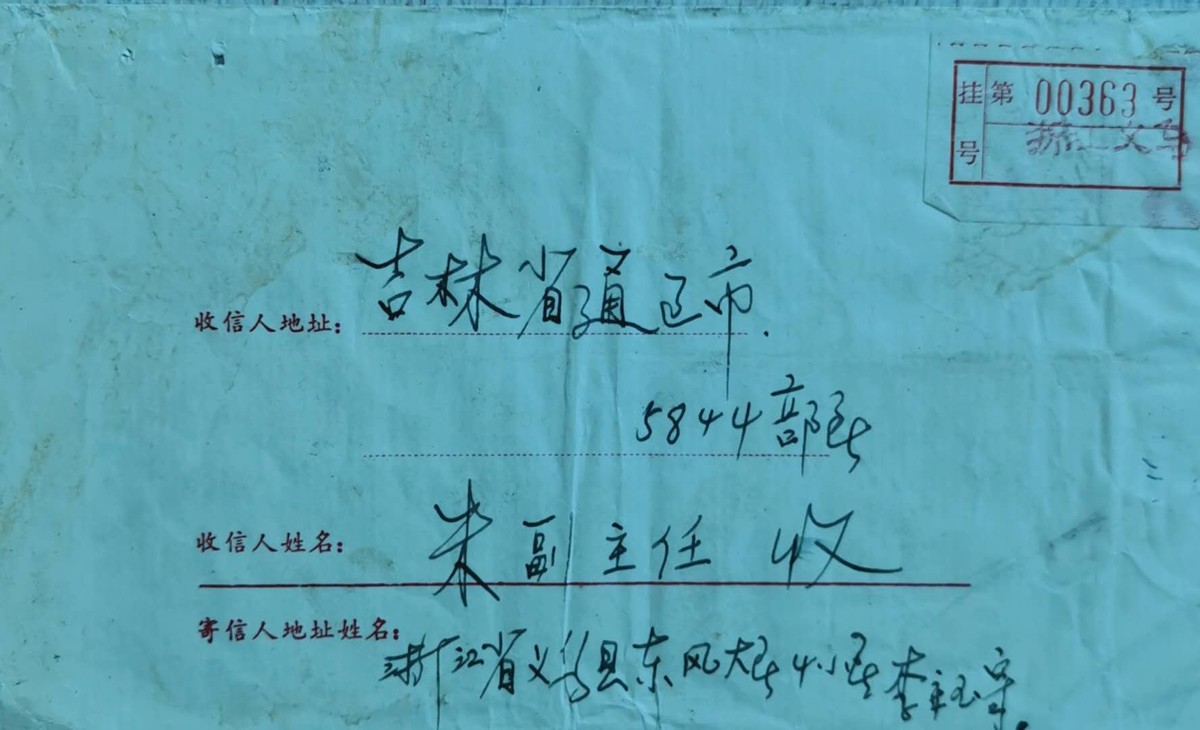 挂号 第 00363 号
浙 义乌
收信人地址: 吉林省通辽市.
5844部队
收信人姓名: 朱副主任 收
寄信人地址姓名: 浙江省义乌县东风大队4小队李